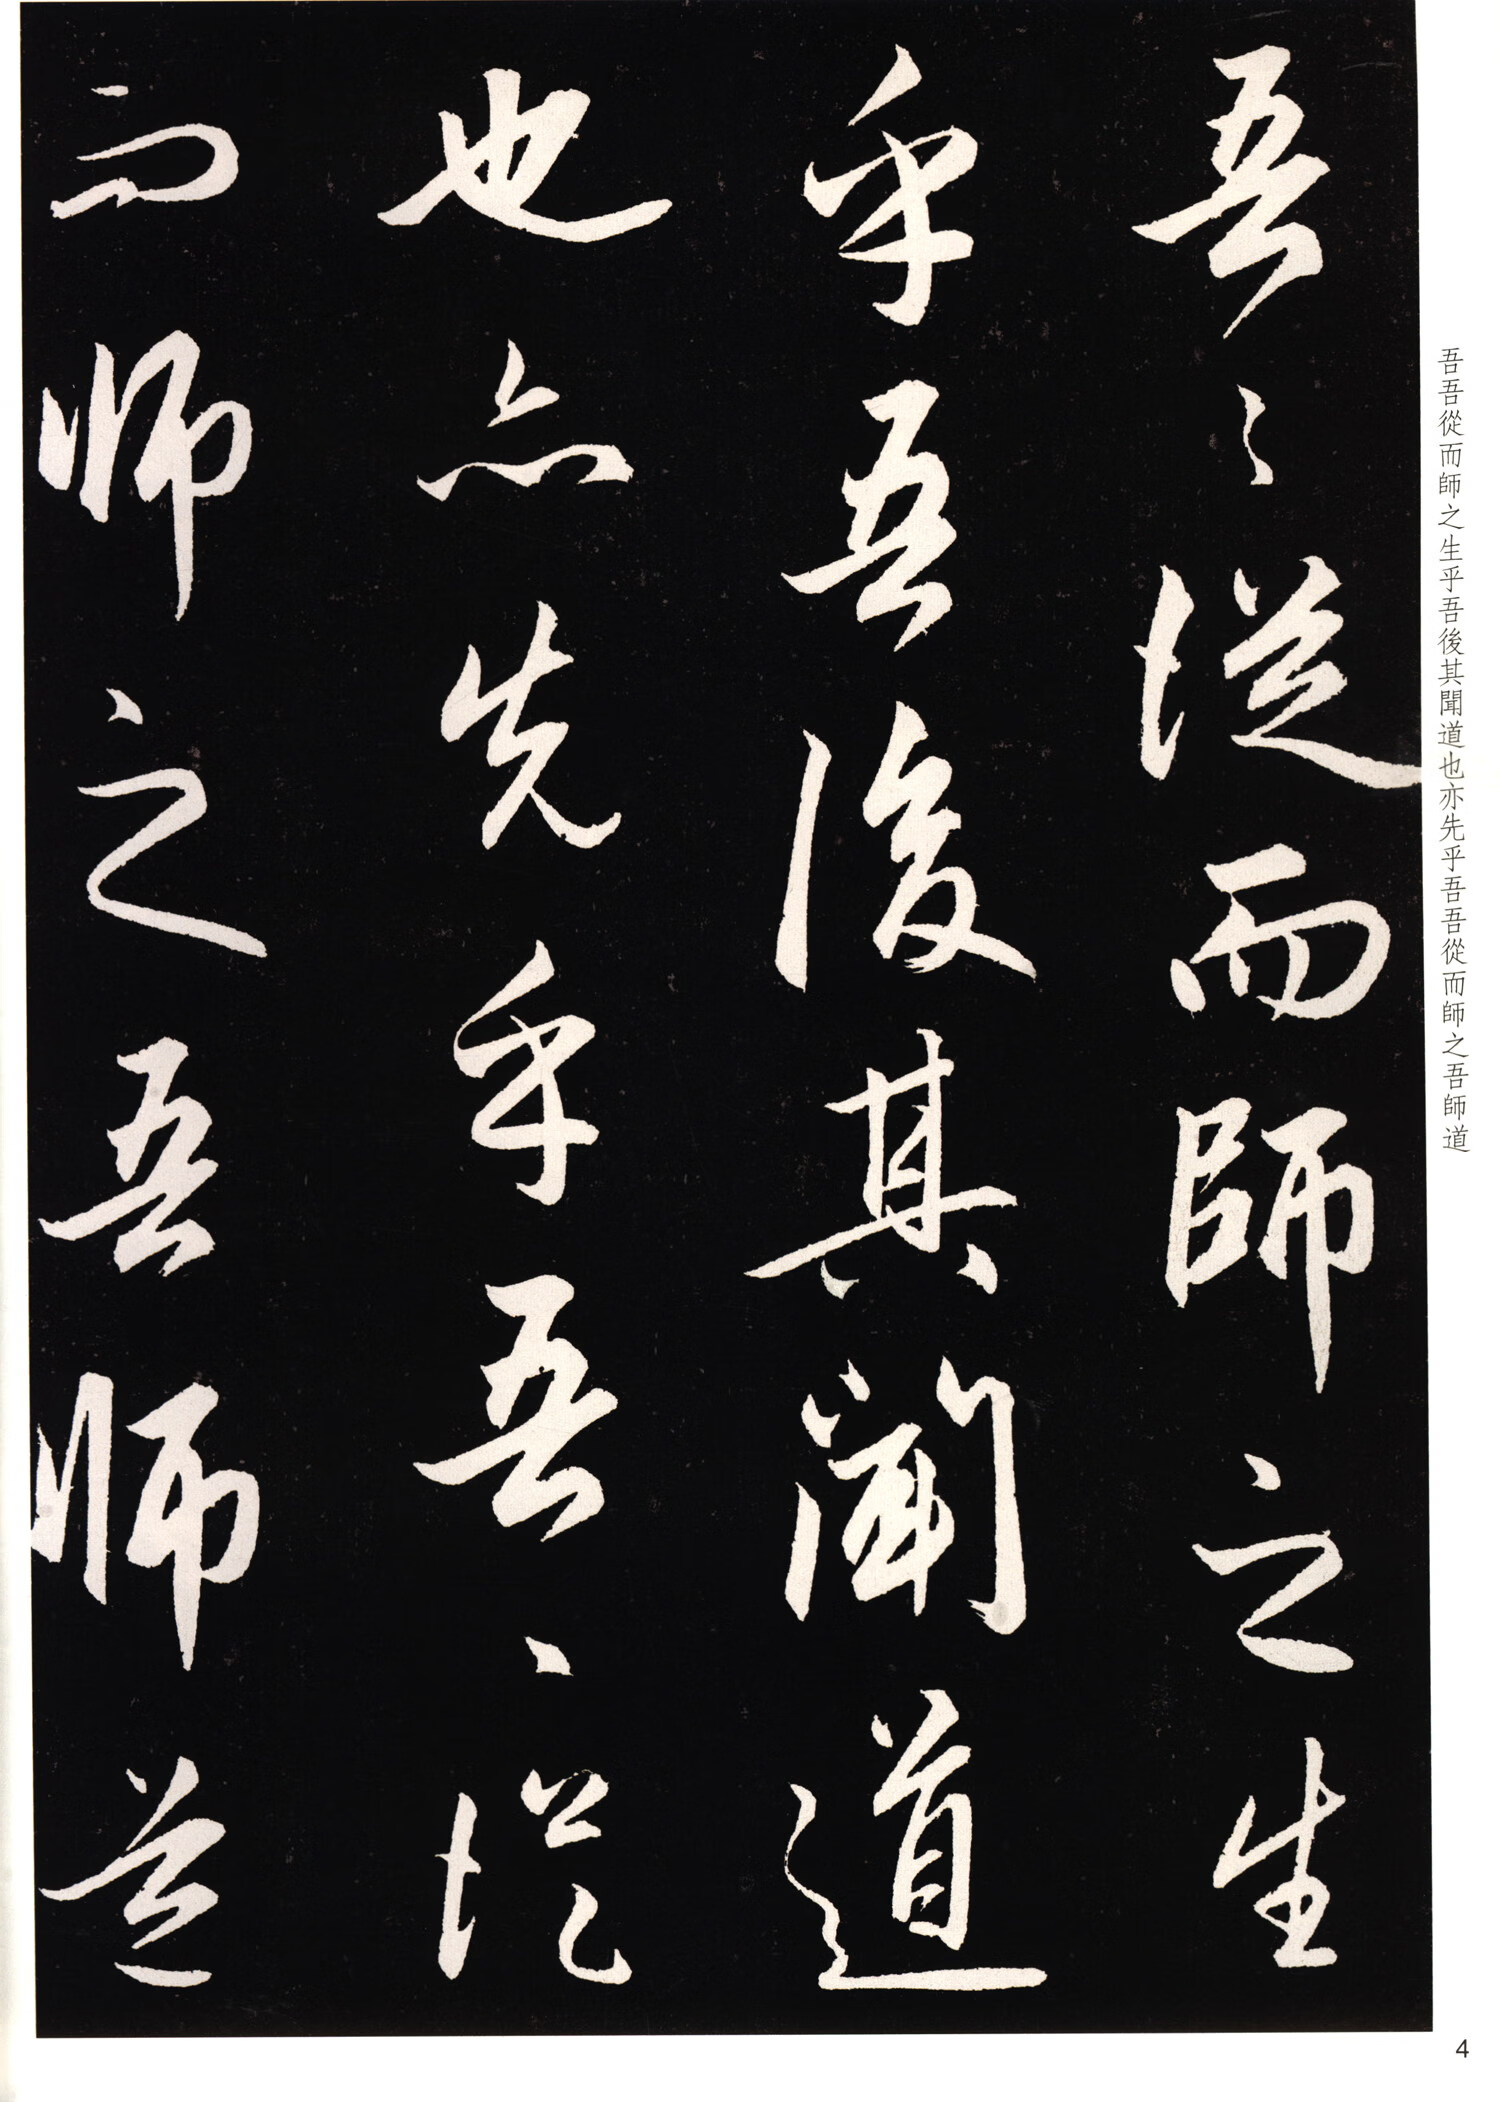 吾〻從而師之生
乎吾後其聞道
也亦先乎吾〻從
而師之吾師道
吾吾從而師之生乎吾後其聞道也亦先乎吾吾從而師之吾師道
4